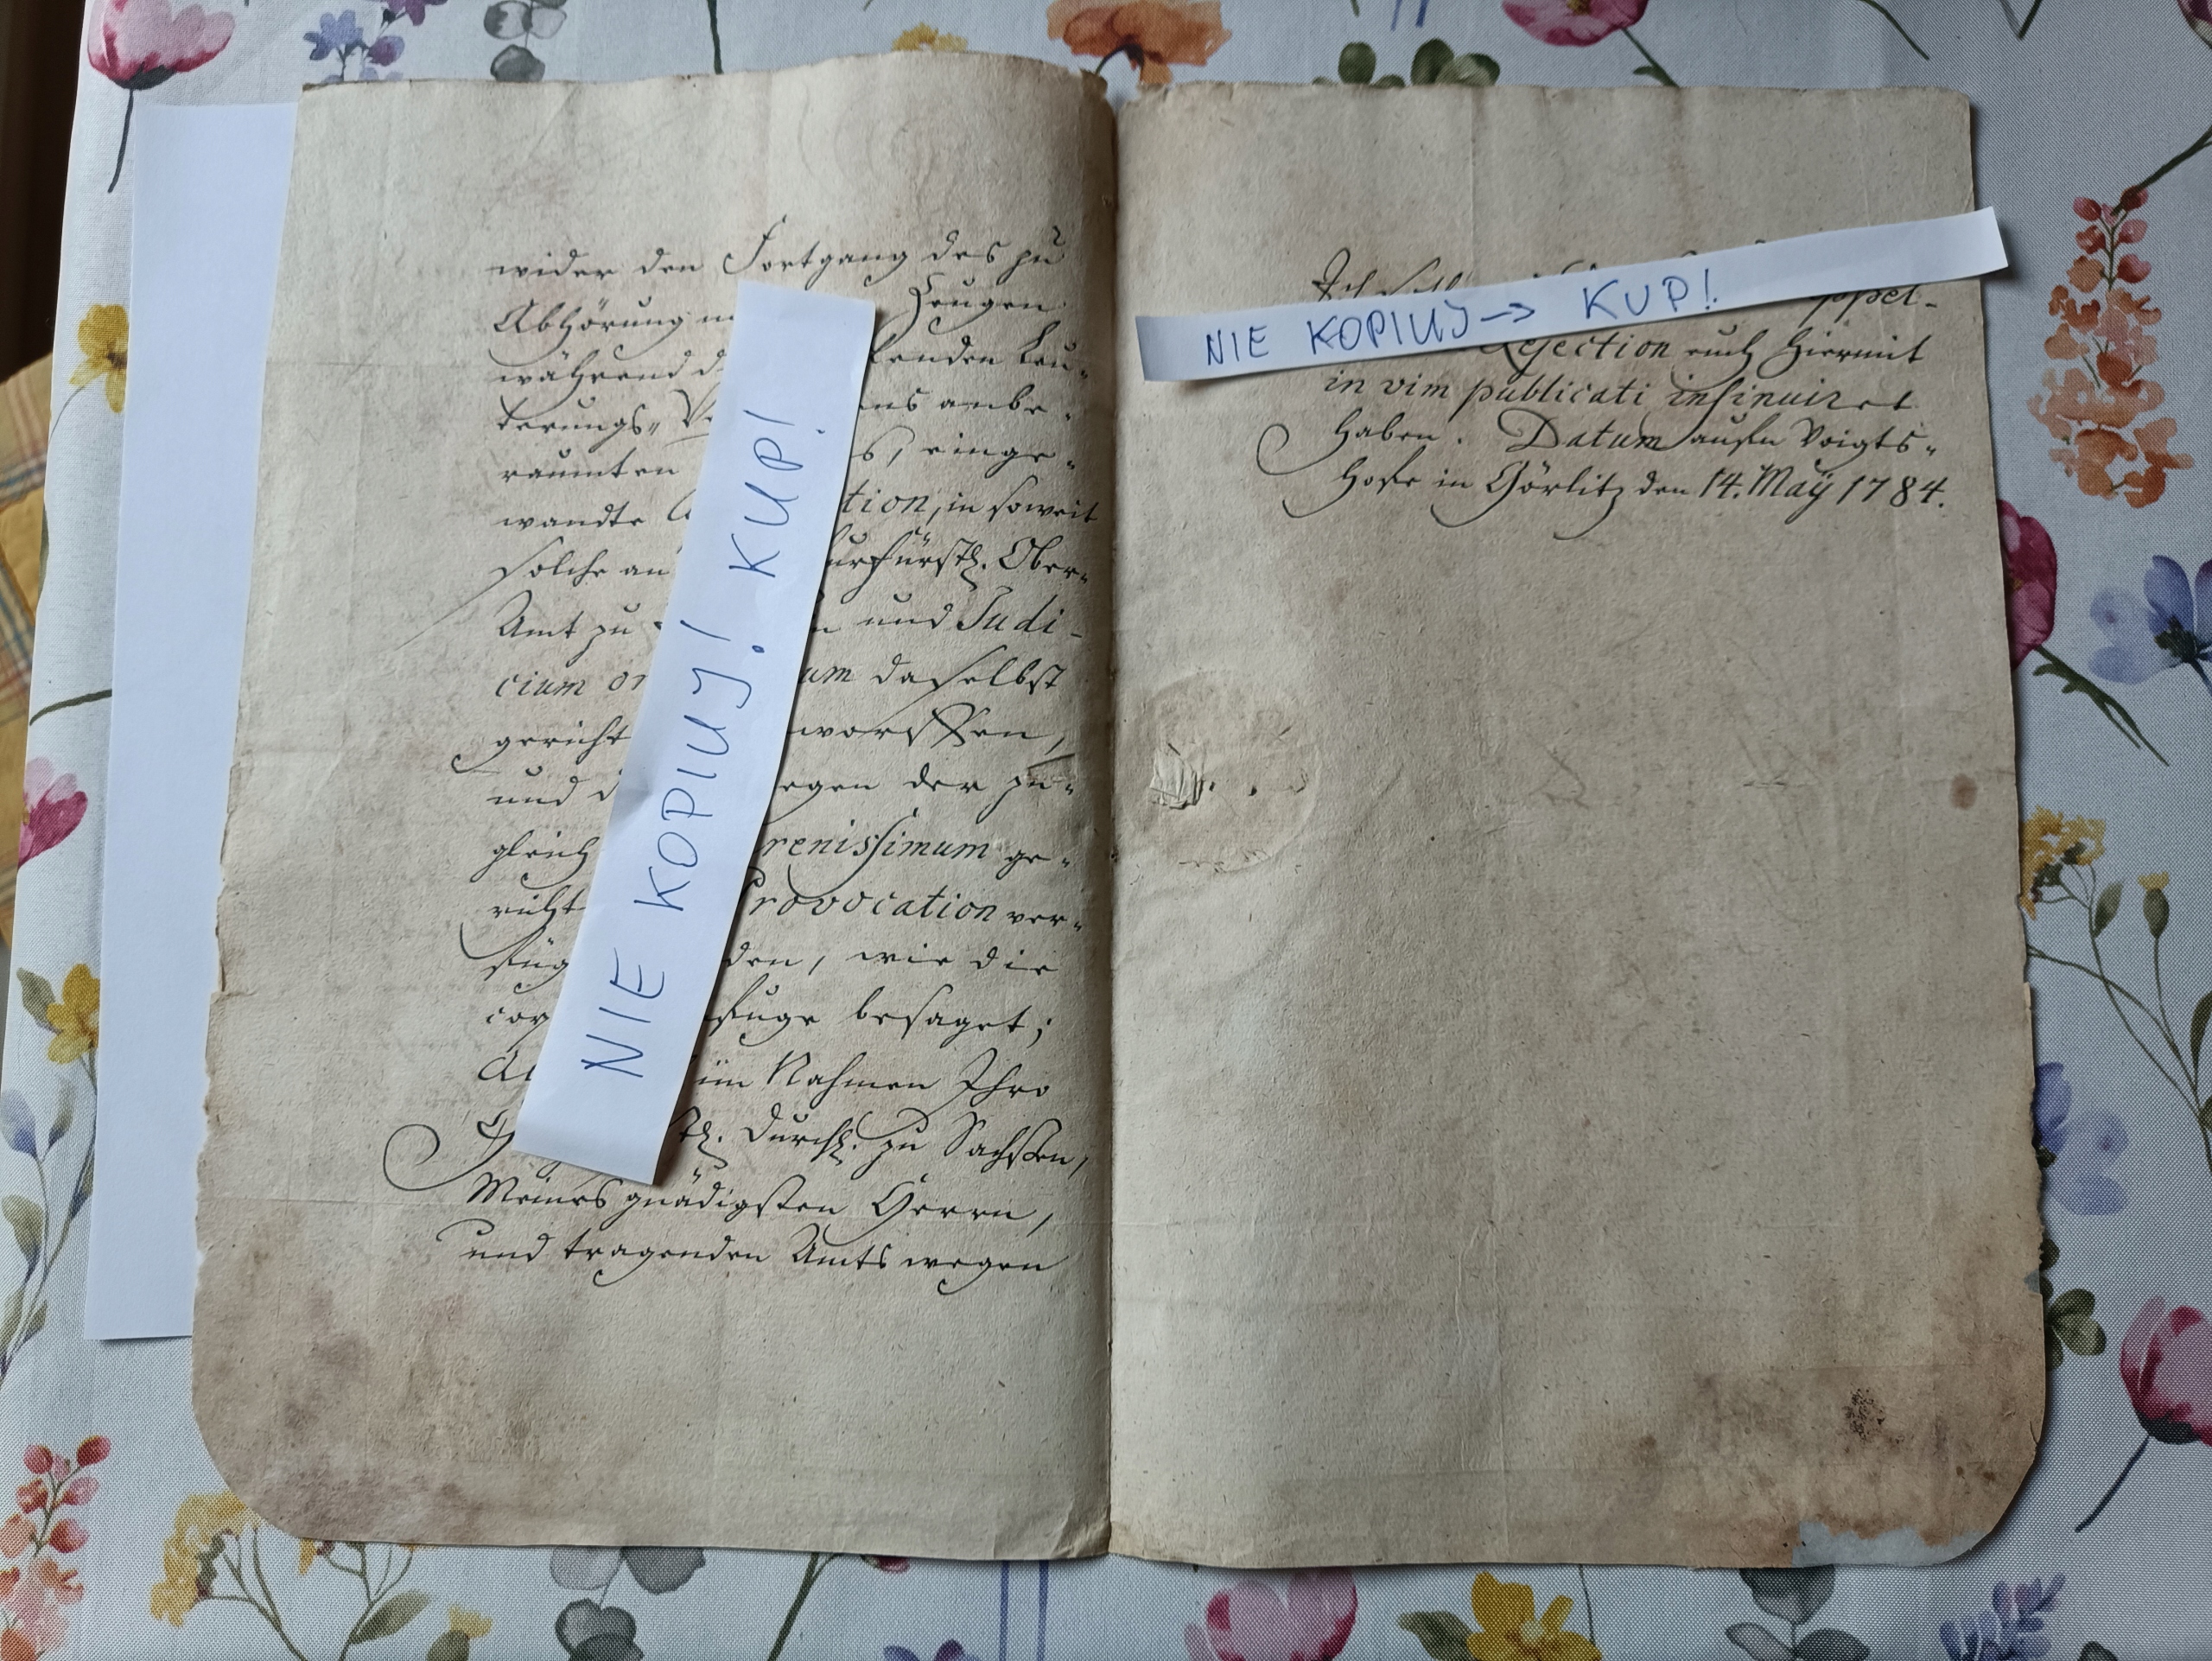 wider den Fortgang des zu
Abhörung Zeugen
während d fenden Leu-
terungs-
ens anbe-
raumten s, einge-
wandte tion, in soweit
solche an urfürstl. Ober-
Amt zu und Judi-
cium or um daselbst
gericht worffen,
und d egen der zu-
gleich renissimum ge-
richt rovocation ver-
füg den, wie die
cop fuge besaget;
im Nahmen Ihro
stl. Durchl. zu Sachßen,
Meines gnädigsten Herrn,
und tragenden Amts wegen
NIE KOPIUJ! KUP!
Ich
NIE KOPIUJ → KUP!
ppel-
Rejection euch hiermit
in vim publicati insinuiret
haben. Datum aufm Voigts-
Hofe in Görlitz den 14. May 1784.